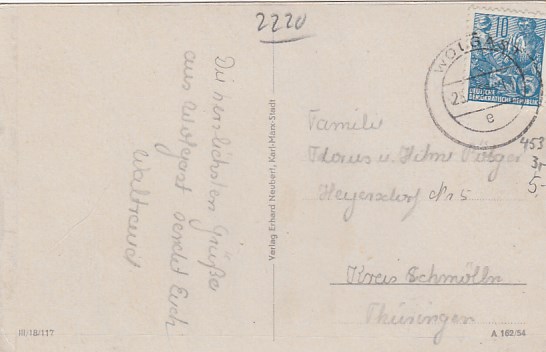 2220
Die herzlichsten Grüße
aus Wolgast sendet Euch
Waltraud
Verlag Erhard Neubert, Karl-Marx-Stadt
III/18/117
WOLGAST
e
10
DEUTSCHE
DEMOKRATISCHE REPUBLIK
453
5-
Familie
u. Helma
Heyersdorf Nr 5
Kreis Schmölln
Thüringen
A 162/54